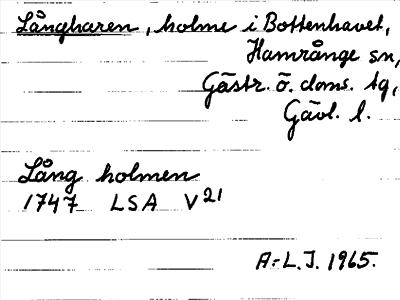 Långharen, holme i Bottenhavet,
Hamrånge sn,
Gästr. ö. doms. tg,
Gävl. l.
Lång holmen
1747 LSA V21
A.-L.J. 1965.